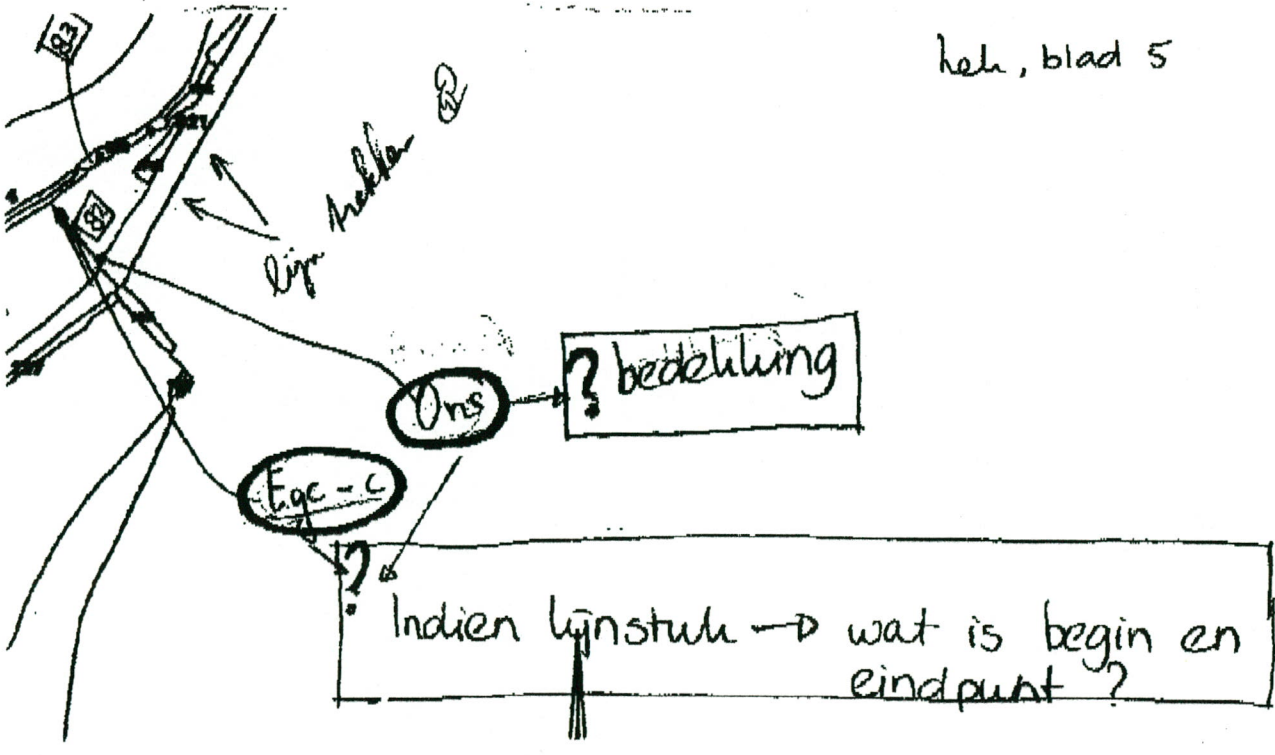 heh, blad 5
83
lijn trekken
82
Ons
? bedekking
Egc - c
?
Indien lijnstuk → wat is begin en
eindpunt ?